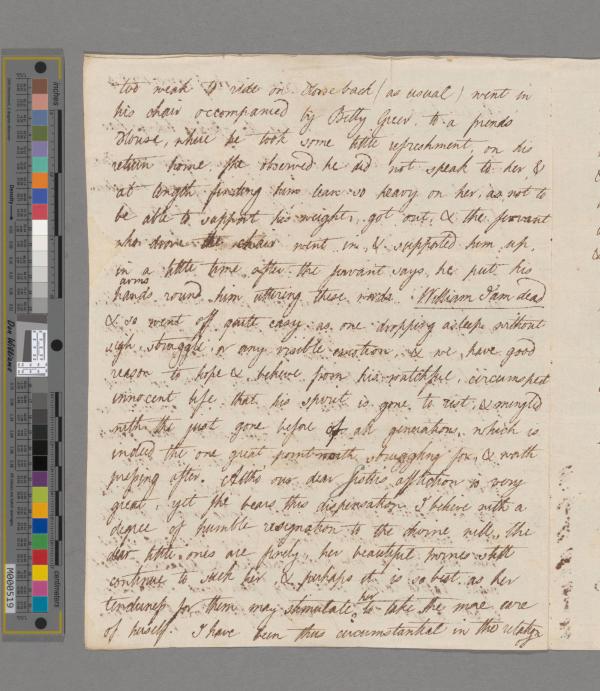 too weak to ride on Horseback (as usual) went in
his chair accompanied by Betty Greer, to a friends
House, where he took some little refreshment, on his
return home she observed he did not speak to her &
at length finding him lean so heavy on her, as not to
be able to support his weight, got out, & the servant
who drove the chair went in, & supported him up,
in a little time after the servant says, he put his
arms
hands round him uttering these words. William I am dead
& so went off quite easy as one dropping asleep without
sigh, struggle, or any visible emotion, & we have good
reason to hope & believe from his watchful, circumspect
innocent life that his spirit is gone to rest, & mingled
with the just gone before of all generations, which is
indeed the one great point worth struggling for, & worth
pressing after. Altho our dear Sisters affliction is very
great, yet she bears this dispensation I believe with a
degree of humble resignation to the divine will, the
dear little ones are finely, her beautiful twines still
continue to suck her & perhaps it is so best as her
her
tenderness for them may stimulate to take the more care
of herself. I have been thus circumstantial in the relating
inches
centimeters
Density
Don Williams
M000519